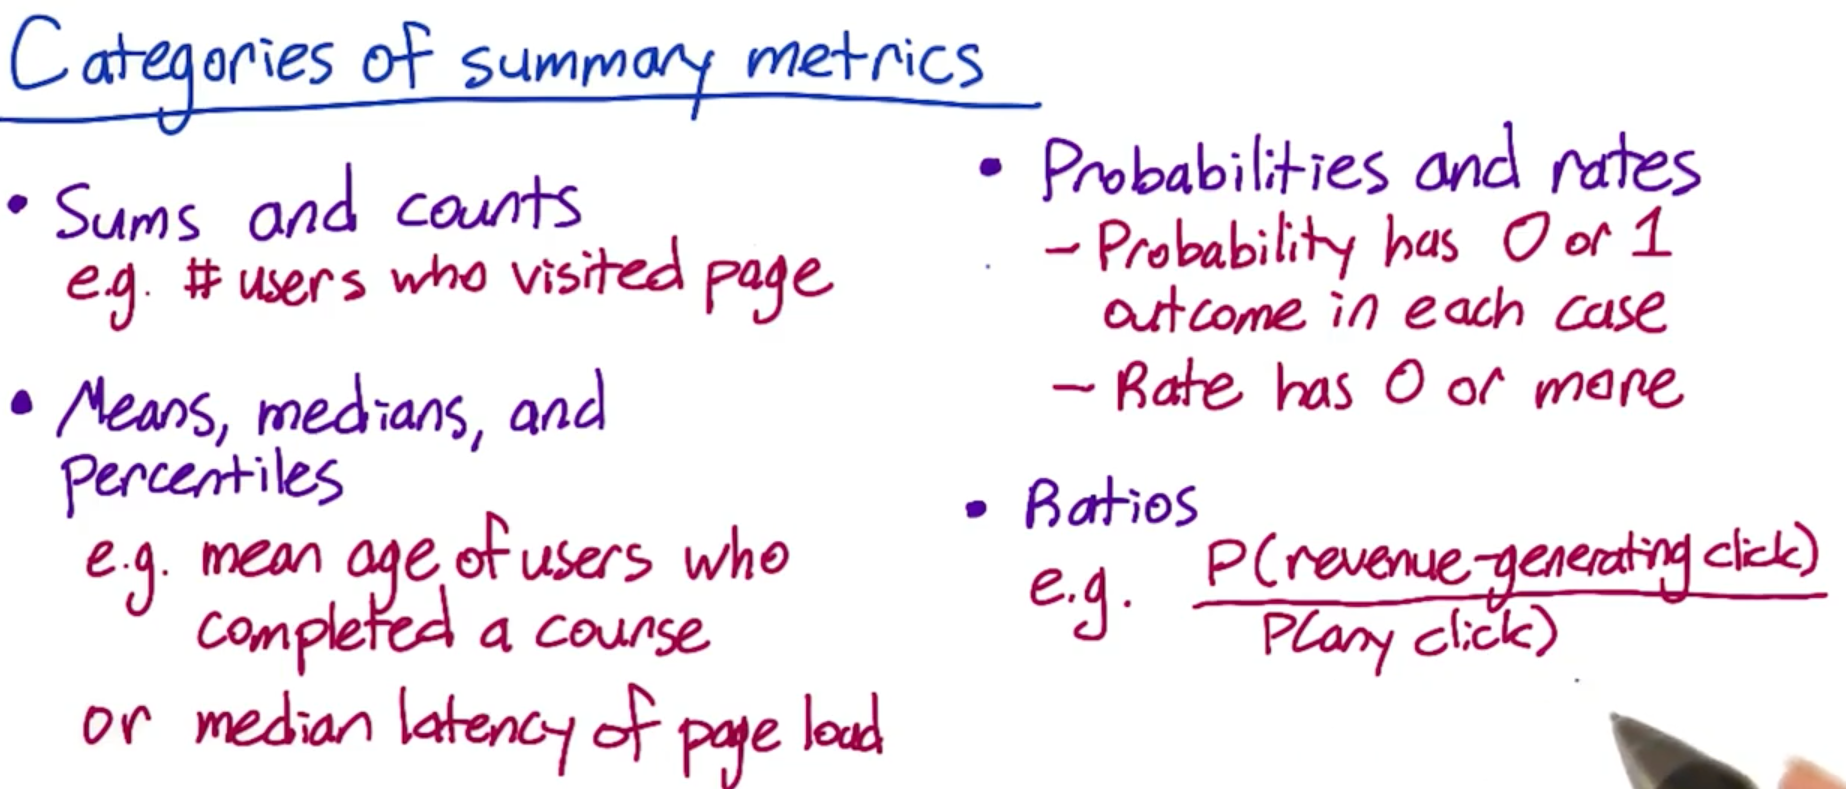 Categories of summary metrics
• Sums and counts
e.g. # users who visited page
• Means, medians, and
percentiles
e.g. mean age of users who
completed a course
or median latency of page load
• Probabilities and rates
- Probability has 0 or 1
outcome in each case
- Rate has 0 or more
• Ratios
e.g. P(revenue-generating click)
P(any click)